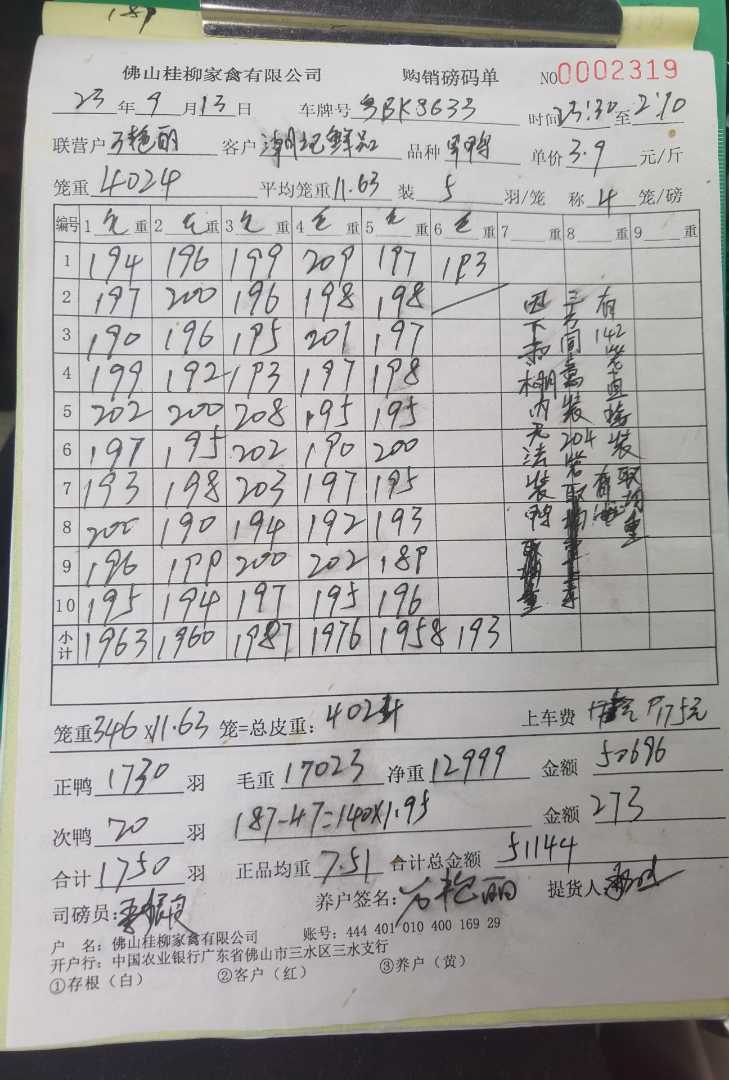 189
佛山桂柳家禽有限公司 购销磅码单 NO0002319
23年9月13日 车牌号粤BK8633 时间23:30至2:10
联营户 石艳丽 客户 潮记鲜品 品种 单价3.9元/斤
笼重4024 平均笼重11.63 装5羽/笼 称4笼/磅
编号 1毛重 2毛重 3毛重 4毛重 5毛重 6毛重 7重 8重 9重
1 194 196 199 209 197 193
2 197 200 196 198 198
3 190 196 195 201 197
4 199 192 193 197 198
5 202 200 208 195 195
6 197 195 202 190 200
7 193 198 203 197 195
8 200 190 194 192 193
9 196 199 200 202 189
10 195 194 197 195 196
小计 1963 1960 1987 1976 1958 193
因下雨棚内无法装鸭
三方同意装204笼取
有142笼直接装
有 取均重
笼重346×11.63笼=总皮重:4024 上车费 175元
正鸭1730羽 毛重17023 净重12999 金额50696
次鸭20羽 187-47=140×1.95 金额273
合计1750羽 正品均重7.51 合计总金额51144
司磅员: 养户签名:石艳丽 提货人
户 名:佛山桂柳家禽有限公司 账号:444 401 010 400 169 29
开户行:中国农业银行广东省佛山市三水区三水支行
①存根(白) ②客户(红) ③养户(黄)